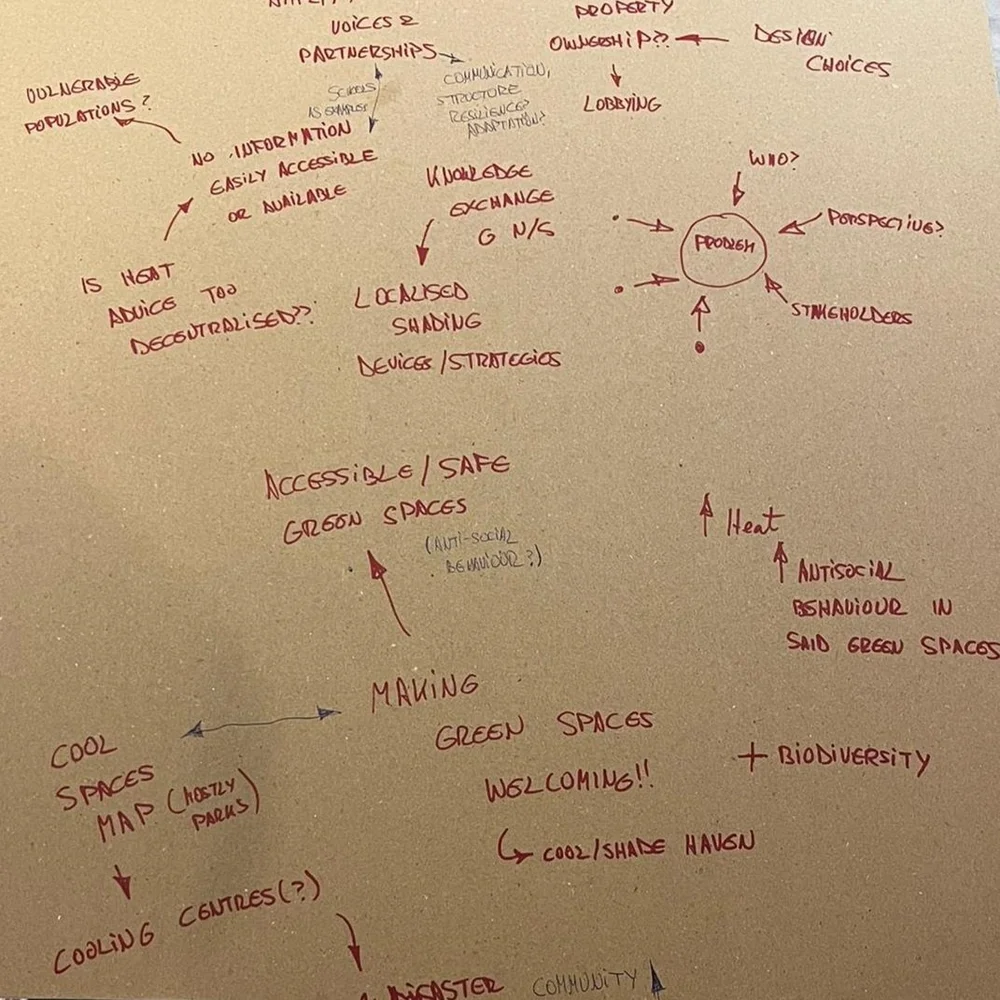 VOICES &
PARTNERSHIPS
SCHOOLS
AS EXAMPLES
COMMUNICATION,
STRUCTURE
RESILIENCE?
ADAPTATION?
PROPERTY
OWNERSHIP??
DESIGN
CHOICES
LOBBYING
VULNERABLE
POPULATIONS?
NO INFORMATION
EASILY ACCESSIBLE
OR AVAILABLE
IS HEAT
ADVICE TOO
DECENTRALISED??
KNOWLEDGE
EXCHANGE
G N/S
LOCALISED
SHADING
DEVICES/STRATEGIES
WHO?
PROBLEM
PERSPECTIVE?
STAKEHOLDERS
ACCESSIBLE/SAFE
GREEN SPACES
(ANTI-SOCIAL
BEHAVIOUR?)
Heat
ANTISOCIAL
BEHAVIOUR IN
SAID GREEN SPACES
MAKING
GREEN SPACES
WELCOMING!!
COOL/SHADE HAVEN
+ BIODIVERSITY
COOL
SPACES
MAP (MOSTLY
PARKS)
COOLING CENTRES(?)
DISASTER COMMUNITY